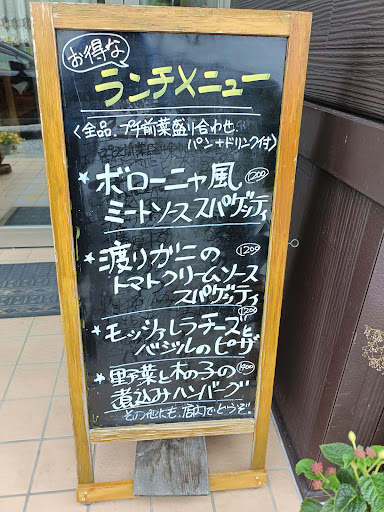 お得な
ランチメニュー
〈全品、プチ前菜盛り合わせ、
パン+ドリンク付〉
★ボローニャ風 1200
ミートソーススパゲッティ
★渡りガニの 1200
トマトクリームソース
スパゲッティ
★モッツァレラチーズと 1200
バジルのピザ
★野菜と木の子の 1400
煮込みハンバーグ
その他にも、店内でどうぞ。